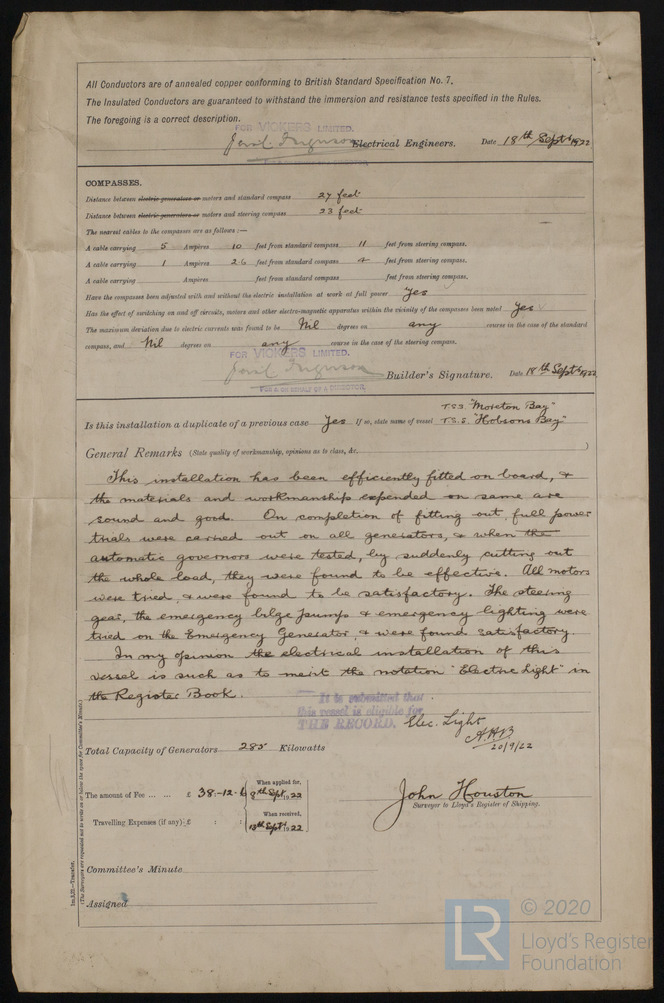 All Conductors are of annealed copper conforming to British Standard Specification No. 7.
The Insulated Conductors are guaranteed to withstand the immersion and resistance tests specified in the Rules.
The foregoing is a correct description.
FOR VICKERS LIMITED.
Electrical Engineers. Date 18th Sept 1922
COMPASSES.
Distance between electric generators or motors and standard compass 27 feet
Distance between electric generators or motors and steering compass 23 feet
The nearest cables to the compasses are as follows :—
A cable carrying 5 Ampères 10 feet from standard compass 11 feet from steering compass.
A cable carrying 1 Ampères 2.6 feet from standard compass 4 feet from steering compass.
A cable carrying Ampères feet from standard compass feet from steering compass.
Have the compasses been adjusted with and without the electric installation at work at full power Yes
Has the effect of switching on and off circuits, motors and other electro-magnetic apparatus within the vicinity of the compasses been noted Yes
The maximum deviation due to electric currents was found to be Nil degrees on any course in the case of the standard
compass, and Nil degrees on any course in the case of the steering compass.
FOR VICKERS LIMITED.
Builder's Signature. Date 18th Sept 1922
FOR & ON BEHALF OF A DIRECTOR.
T.S.S. "Moreton Bay"
Is this installation a duplicate of a previous case Yes If so, state name of vessel T.S.S. "Hobsons Bay"
General Remarks (State quality of workmanship, opinions as to class, &c.)
This installation has been efficiently fitted on board, &
the materials and workmanship expended on same are
sound and good. On completion of fitting out, full power
trials were carried out on all generators, & when the
automatic governors were tested, by suddenly cutting out
the whole load, they were found to be effective. All motors
were tried, & were found to be satisfactory. The steering
gear, the emergency bilge pumps & emergency lighting were
tried on the Emergency Generator, & were found satisfactory.
In my opinion the electrical installation of this
vessel is such as to merit the notation "Electric Light" in
the Register Book.
It is submitted that
this vessel is eligible for
THE RECORD. Elec. Light
20/9/22
Total Capacity of Generators 285 Kilowatts
The amount of Fee ... ... £ 38 : 12 : 6 When applied for, 8th Sept. 1922
Travelling Expenses (if any) £ : : When received, 13th Sept 1922
John Houston
Surveyor to Lloyd's Register of Shipping.
Committee's Minute
Assigned
(The Surveyors are requested not to write on or below the space for Committee's Minute.)
© 2020
LR
Lloyd's Register
Foundation